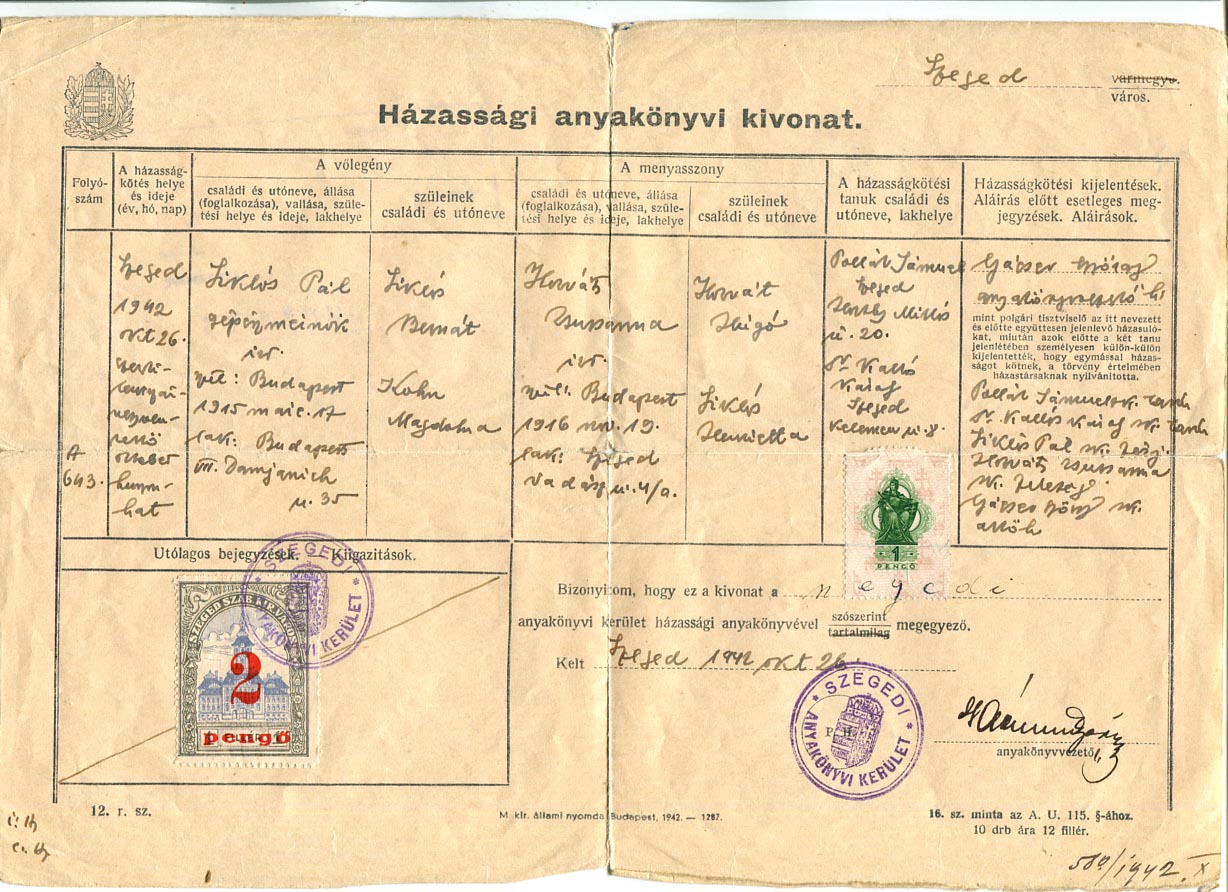 Szeged
vármegye.
város.
Házassági anyakönyvi kivonat.
Folyó-
szám
A házasság-
kötés helye
és ideje
(év, hó, nap)
A vőlegény
családi és utóneve, állása
(foglalkozása), vallása, szüle-
tési helye és ideje, lakhelye
szüleinek
családi és utóneve
A menyasszony
családi és utóneve, állása
(foglalkozása), vallása, szüle-
tési helye és ideje, lakhelye
szüleinek
családi és utóneve
A házasságkötési
tanuk családi és
utóneve, lakhelye
Házasságkötési kijelentések.
Aláírás előtt esetleges meg-
jegyzések. Aláírások.
A
643.
Szeged
1942
okt 26.
október
huszon-
hat
Siklós Pál
gépészmérnök
izr.
szül: Budapest
1915 márc. 17
lak: Budapest
VII. Damjanich
u. 35
Siklós
Bernát
Kohn
Magdolna
Horváth
Zsuzsanna
izr.
szül: Budapest
1916 nov. 19.
lak: Szeged
Vadász u. 4/a.
Horvát
Hugó
Siklós
Henrietta
Pollák Sámuel
Szeged
u. 20.
Dr
Szeged
Kelemen u. 8.
anyakönyvvezető h.
mint polgári tisztviselő az itt nevezett
és előtte együttesen jelenlevő házasuló-
kat, miután azok előtte a két tanu
jelenlétében személyesen külön-külön
kijelentették, hogy egymással házas-
ságot kötnek, a törvény értelmében
házastársaknak nyilvánította.
Pollák Sámuel sk. tanu
Dr. sk. tanu
Siklós Pál sk. férj
Horváth Zsuzsanna
sk. feleség
sk.
Utólagos bejegyzések. — Kiigazítások.
SZEGED SZAB. KIR. VÁROS
2
pengő
* SZEGEDI *
ANYAKÖNYVI KERÜLET
1
PENGŐ
Bizonyítom, hogy ez a kivonat a szegedi
anyakönyvi kerület házassági anyakönyvével szószerint
tartalmilag megegyező.
Kelt Szeged 1942 okt 26.
* SZEGEDI *
ANYAKÖNYVI KERÜLET
P. H.
anyakönyvvezető
12. r. sz.
M. kir. állami nyomda Budapest, 1942. — 1287.
16. sz. minta az A. U. 115. §-ához.
10 drb ára 12 fillér.
580/1942. X